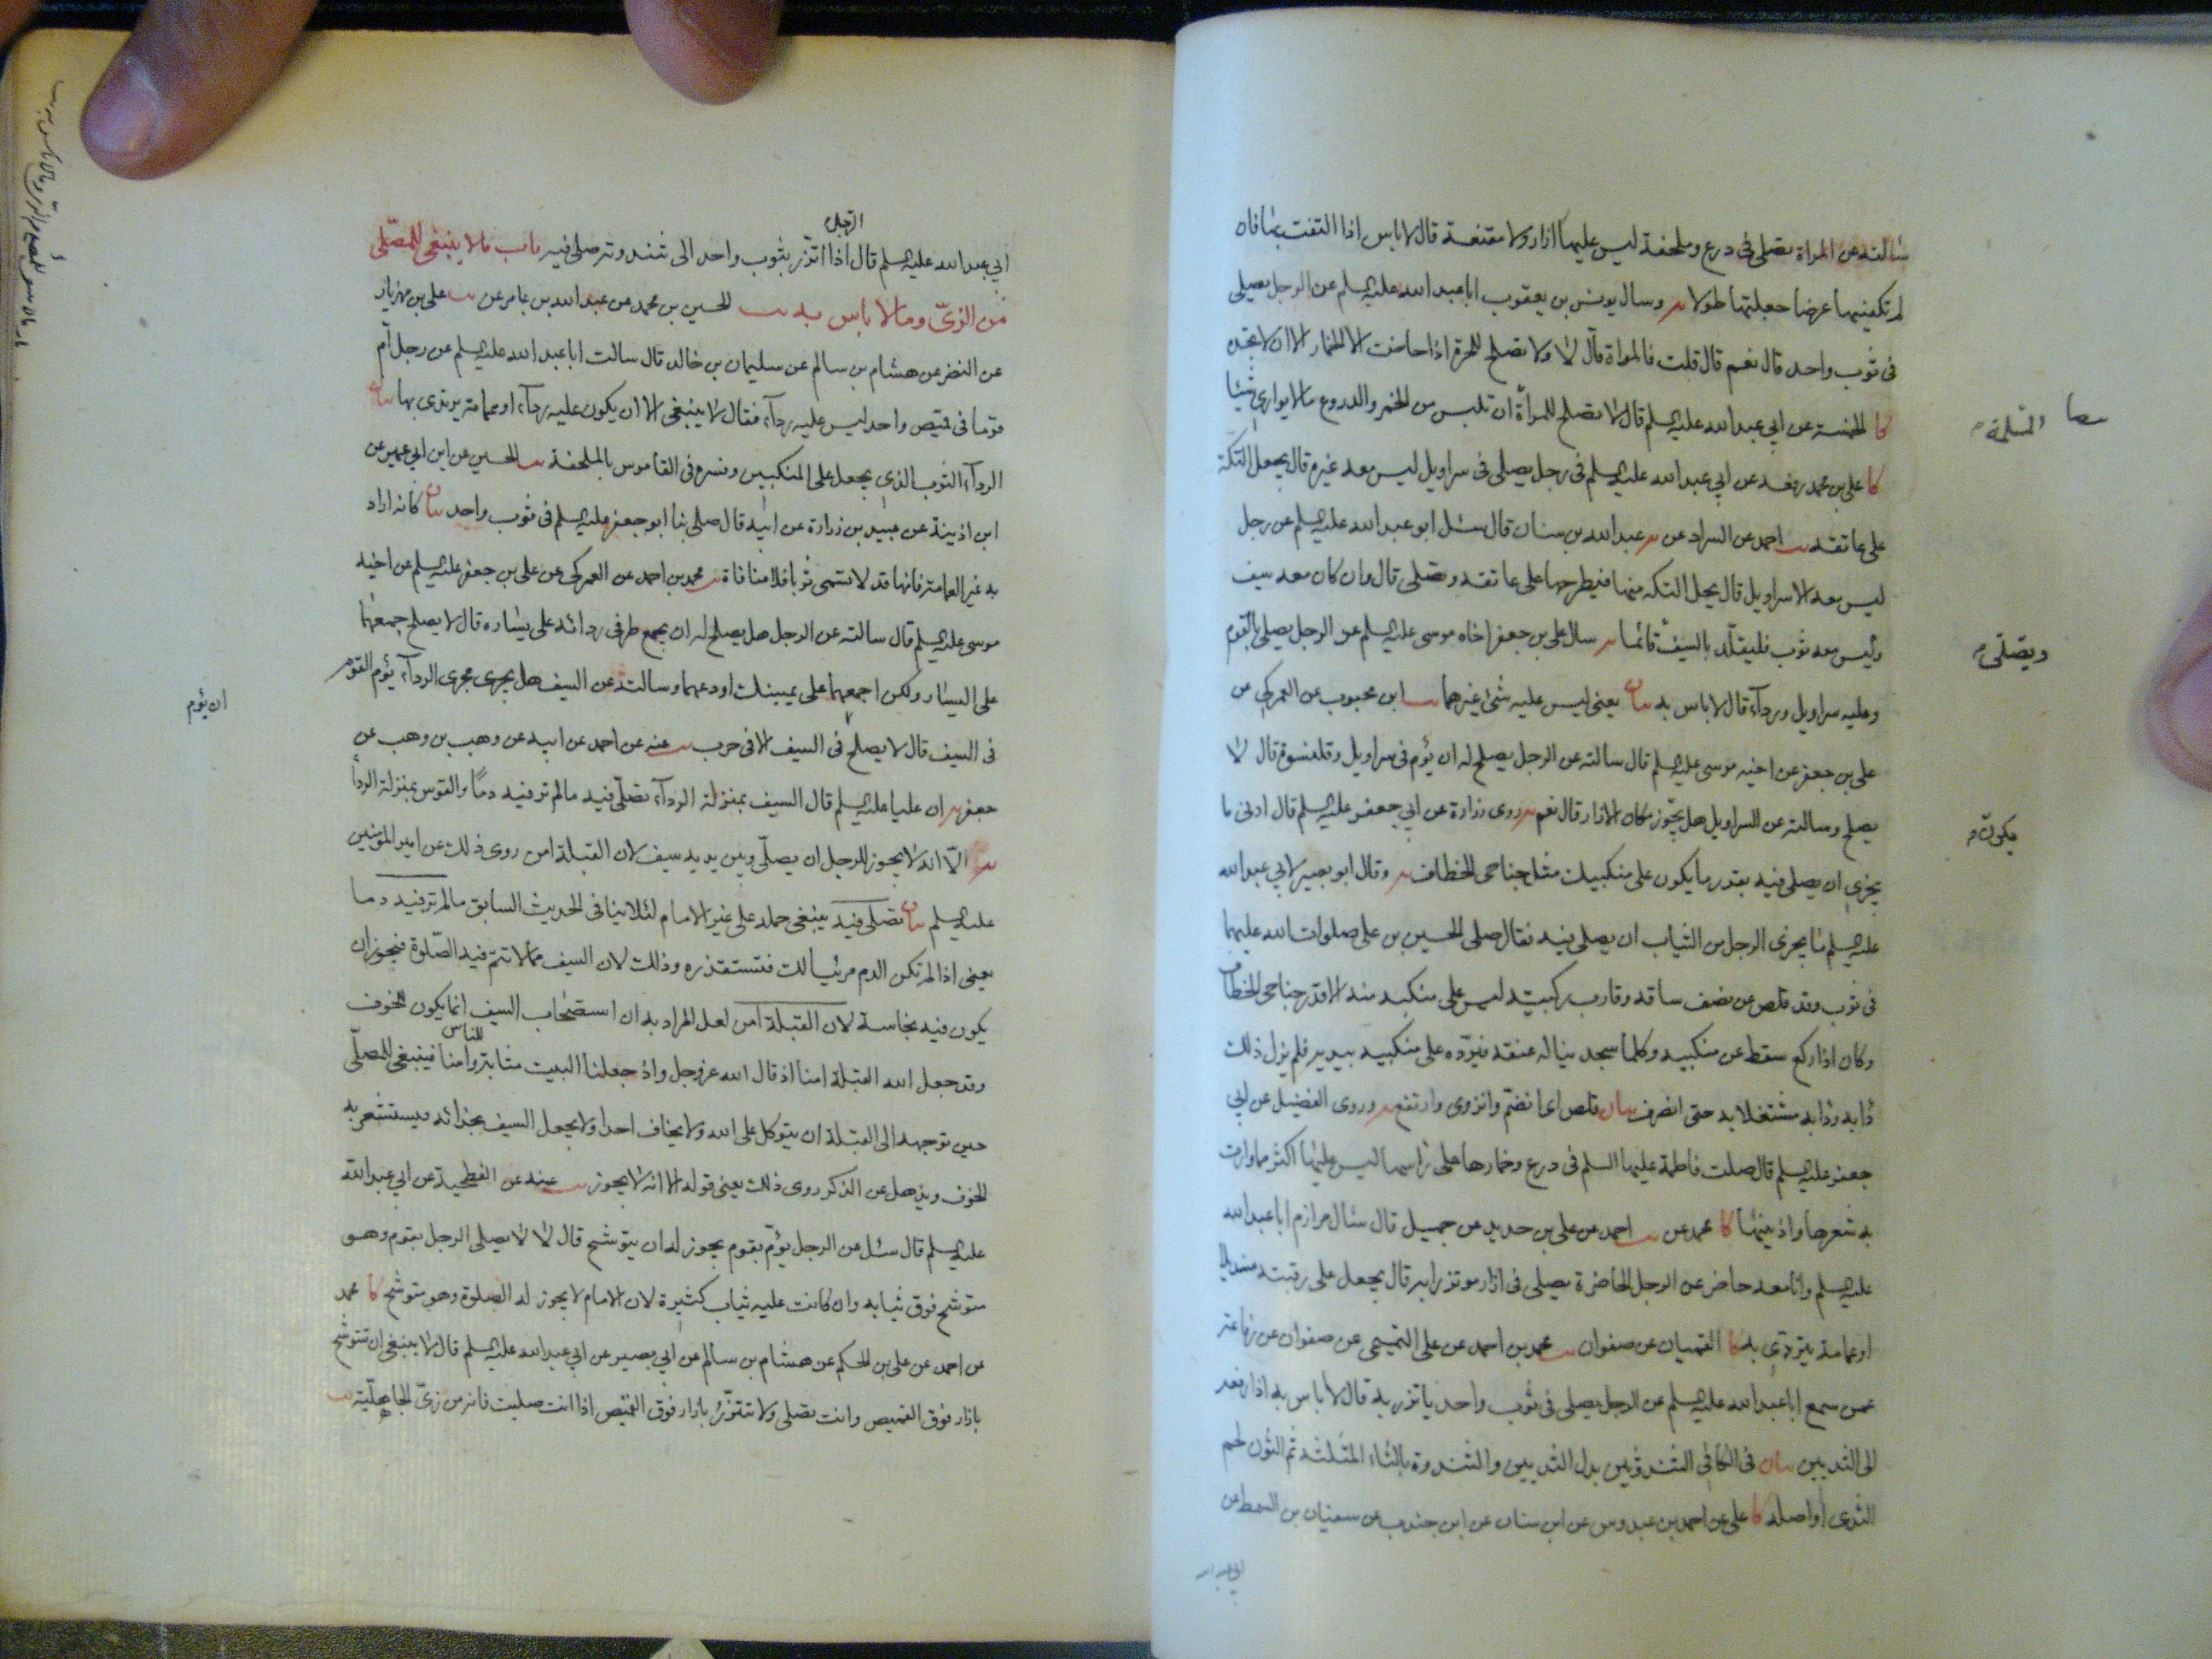 سألته عن المراة تصلى فى درع وملحفة ليس عليها ازار ولا مقنعة قال لا باس اذا التفت بها فان
لم تكفيها عرضا جعلتها طولا يه وسال يونس بن يعقوب ابا عبد الله عليه السلم عن الرجل يصلى
فى ثوب واحد قال نعم قال قلت فالمراة قال لا ولا تصلح للحرة اذا حاضت الا الخمار الا ان لا تجده
كا الخمسة عن ابي عبد الله عليه السلم قال لا يصلح للمراة ان تلبس من الخمر والدروع ما لا يوارى شيئا
المسلمة
كا على بن محمد رفعه عن ابي عبد الله عليه السلم فى رجل يصلى فى سراويل ليس معه غيره قال يجعل التكة
على عاتقه يب احمد عن السراد عن يه عبد الله بن سنان قال سئل ابو عبد الله عليه السلم عن رجل
ليس معه الا سراويل قال يحل التكه منها فيطرحها على عاتقه ويصلى قال وان كان معه سيف
وليس معه ثوب فليقلد بالسيف قائما يه سال على بن جعفر اخاه موسى عليه السلم عن الرجل يصلى بالقوم
ويصلى
وعليه سراويل ورداء قال لا باس به بيان يعنى ليس عليه شئ غيرهما يب ابن محبوب عن العمركى عن
على بن جعفر عن اخيه موسى عليه السلم قال سالته عن الرجل يصلح له ان يؤم فى سراويل وقلنسوة قال لا
يصلح وسالته عن السراويل هل يجوز مكان الازار قال نعم يه روى زرارة عن ابي جعفر عليه السلم قال ادنى ما
يكون
يجزى ان يصلى فيه بقدر ما يكون على منكبيك مثل جناحى الخطاف يه وقال ابو بصير لابي عبد الله
عليه السلم ما يجزى الرجل من الثياب ان يصلى فيه فقال صلى الحسين بن على صلوات الله عليهما
فى ثوب وقد قلص عن نصف ساقه وقارب ركبتيه ليس على منكبه منه الا قدر جناحى الخطاف
وكان اذا ركع سقط عن منكبيه وكلما سجد يناله عنقه فيرده على منكبيه بيديه فلم يزل ذلك
دابه ودابه مشتغلا به حتى انصرف بيان قلص اى انضم وانزوى وارتفع يه وروى الفضيل عن ابي
جعفر عليه السلم قال صلت فاطمة عليها السلم فى درع وخمارها على راسها ليس عليها اكثر مما وارت
به شعرها واذنيها كا محمد عن يب احمد عن على بن حديد عن جميل قال سئال مرازم ابا عبد الله
عليه السلم وانا معه حاضر عن الرجل الحاضرة يصلى فى ازار موتزرا به قال يجعل على رقبته منديلا
او عمامة يتردى به كا القميان عن صفوان يب محمد بن احمد عن على التميمى عن صفوان عن رفاعة
عمن سمع ابا عبد الله عليه السلم عن الرجل يصلى فى ثوب واحد ياتزر به قال لا باس به اذا رفعه
الى الثديين بيان فى الكافى الثندوتين بدل الثديين والثندوة بالثاء المثلثة ثم النون لحم
الثدى او اصله كا على عن احمد بن عبدوس عن ابن سنان عن ابن جندب عن سفيان بن السمط عن
ابي عبد الله
الرجل
ابي عبد الله عليه السلم قال اذا اتزر بثوب واحد الى ثندوته صلى فيه باب ما لا ينبغى للمصلى
من الزىّ وما لا باس به يب الحسين بن محمد عن عبد الله بن عامر عن يب على بن مهزيار
عن النضر عن هشام بن سالم عن سليمان بن خالد قال سالت ابا عبد الله عليه السلم عن رجل أمّ
قوما فى قميص واحد ليس عليه رداء فقال لا ينبغى الا ان يكون عليه رداء او عمامة يرتدى بها بيان
الرداء الثوب الذى يجعل على المنكبين وفسره فى القاموس بالملحفة يب الحسين عن ابن ابي عمير عن
ابن اذينة عن عبيد بن زرارة عن ابيه قال صلى بنا ابو جعفر عليه السلم فى ثوب واحد بيان كانه اراد
به غير العمامة فانها قد لا تسمى ثوبا فلا منافاة يب محمد بن احمد عن العمركى عن على بن جعفر عليه السلم عن اخيه
موسى عليه السلم قال سالته عن الرجل هل يصلح له ان يجمع طرفى ردائه على يساره قال لا يصلح جمعهما
على اليسار ولكن اجمعهما على يمينك او دعهما وسالته عن السيف هل يجرى مجرى الرداء يؤم القوم
ان يؤم
فى السيف قال لا يصلح فى السيف الا فى حرب يب عنه عن احمد عن ابيه عن وهب بن وهب عن
جعفر يه ان عليا عليه السلم قال السيف بمنزلة الرداء تصلى فيه ما لم تر فيه دما والقوس بمنزلة الرداء
يه الا انه لا يجوز للرجل ان يصلى وبين يديه سيف لان القبلة امن روى ذلك عن امير المومنين
عليه السلم بيان تصلى فيه ينبغى حمله على غير الامام لئلا ينافى الحديث السابق ما لم تر فيه دما
يعنى اذا لم تكن الدم مرئيا لك فتستقذره وذلك لان السيف مما لا تتم فيه الصلوة فيجوز ان
يكون فيه نجاسة لان القبلة امن لعل المراد به ان استصحاب السيف انما يكون للخوف
وقد جعل الله القبلة امنا اذ قال الله عز وجل واذ جعلنا البيت مثابة للناس وامنا فينبغى للمصلى
حين توجهه الى القبلة ان يتوكل على الله ولا يخاف احدا ولا يجعل السيف بحذائه فيستشعر به
الخوف ويذهل عن الذكر روى ذلك يعنى قوله الا انه لا يجوز يب عنه عن الفطحية عن ابي عبد الله
عليه السلم قال سئل عن الرجل يؤم بقوم يجوز له ان يتوشح قال لا لا يصلى الرجل بقوم وهو
متوشح فوق ثيابه وان كانت عليه ثياب كثيرة لان الامام لا يجوز له الصلوة وهو متوشح كا محمد
عن احمد عن على بن الحكم عن هشام بن سالم عن ابي بصير عن ابي عبد الله عليه السلم قال لا ينبغى ان تتوشح
بازار فوق القميص وانت تصلى ولا تتزر بازار فوق القميص اذا انت صليت فانه من زىّ الجاهلية يب